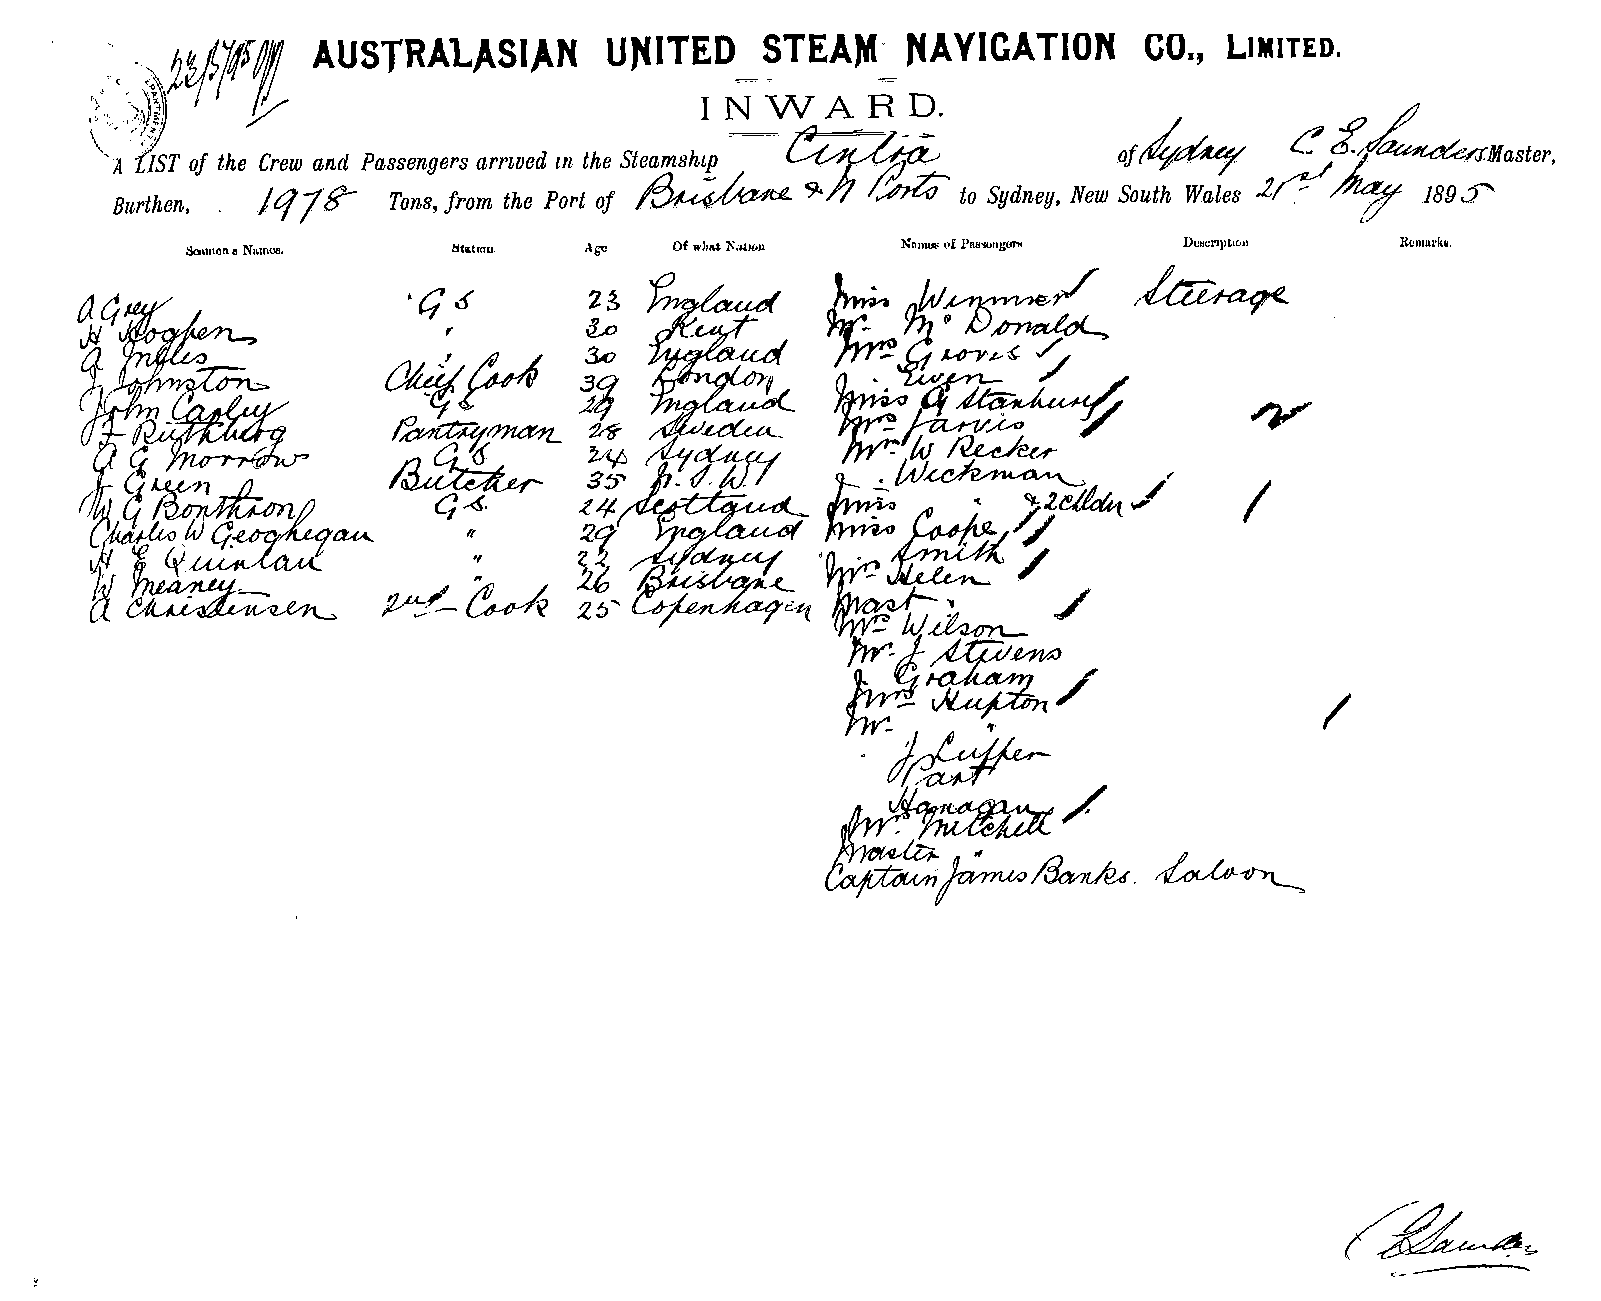 23/5/95
AUSTRALASIAN UNITED STEAM NAVIGATION CO., LIMITED.
INWARD.
A LIST of the Crew and Passengers arrived in the Steamship Cintra of Sydney C. E. Saunders Master,
Burthen, 1978 Tons, from the Port of Brisbane & N Ports to Sydney, New South Wales 21st May 1895
Seamen's Names. Station Age Of what Nation Names of Passengers Description Remarks.
A Grey G S 23 England Miss Wimmer Steerage
H Hogben " 30 Kent Mr. McDonald
A Ingles " 30 England Mrs Groves
J Johnston Chief Cook 39 London Ewen
John Canley GS 29 England Miss A Stanhurst
F Ruthberg Pantryman 28 Sweden Mrs Jarvis
A G Morrow GS 24 Sydney Mr. W Recker
J Green Butcher 35 N.S.W. Wickman
W G Bonthron G S. 24 Scotland Miss " & 2 Chldn
Charles W Geoghegan " 29 England Miss Cooper
H E Quinlan " 22 Sydney Smith
W Meaney " 26 Brisbane Mrs Helen
A Christensen 2nd Cook 25 Copenhagen Mast "
Mrs Wilson
Mr. J Stevens
Graham
Mrs Hupton
Mr. "
J Luffer
Part
Hanagan
Mrs. Mitchell
Master "
Captain James Banks. Saloon
C E Saunders